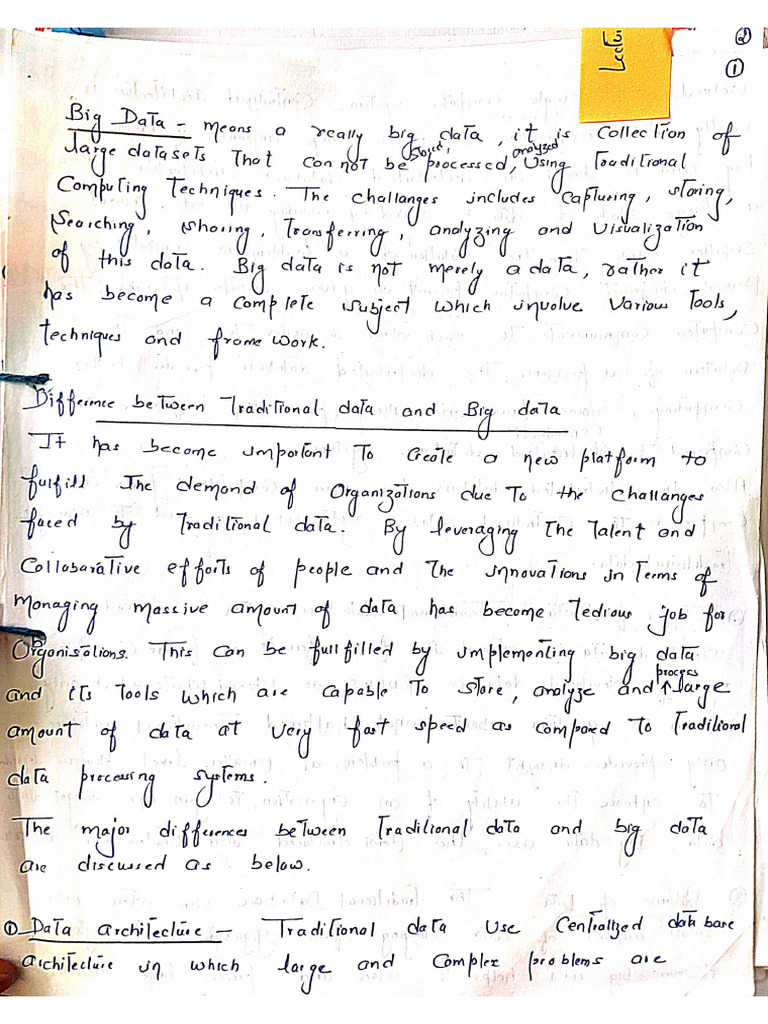 Lectu
②
①
Big Data - means a really big data, it is Collection of
stored, analyzed
large datasets That can not be processed, Using Traditional
Computing Techniques. The challanges includes capturing, storing,
Searching, sharing, Transferring, analyzing and Visualization
of this data. Big data is not merely a data, rather it
has become a complete subject which involve Various Tools,
techniques and frame work.
Difference between Traditional data and Big data
It has become important To Create a new platform to
fulfill The demand of Organizations due To the challanges
faced by Traditional data. By leveraging The Talent and
Collobarative efforts of people and The innovations in Terms of
Managing massive amount of data has become Tedious job for
Organisations. This can be fullfilled by implementing big data
process
and its Tools which are capable To store, analyze and ↑ large
amount of data at very fast speed as compared To Traditional
data processing systems.
The major differences between Traditional data and big data
are discussed as below.
① Data architecture - Traditional data Use Centralized data base
architecture in which large and Complex problems are